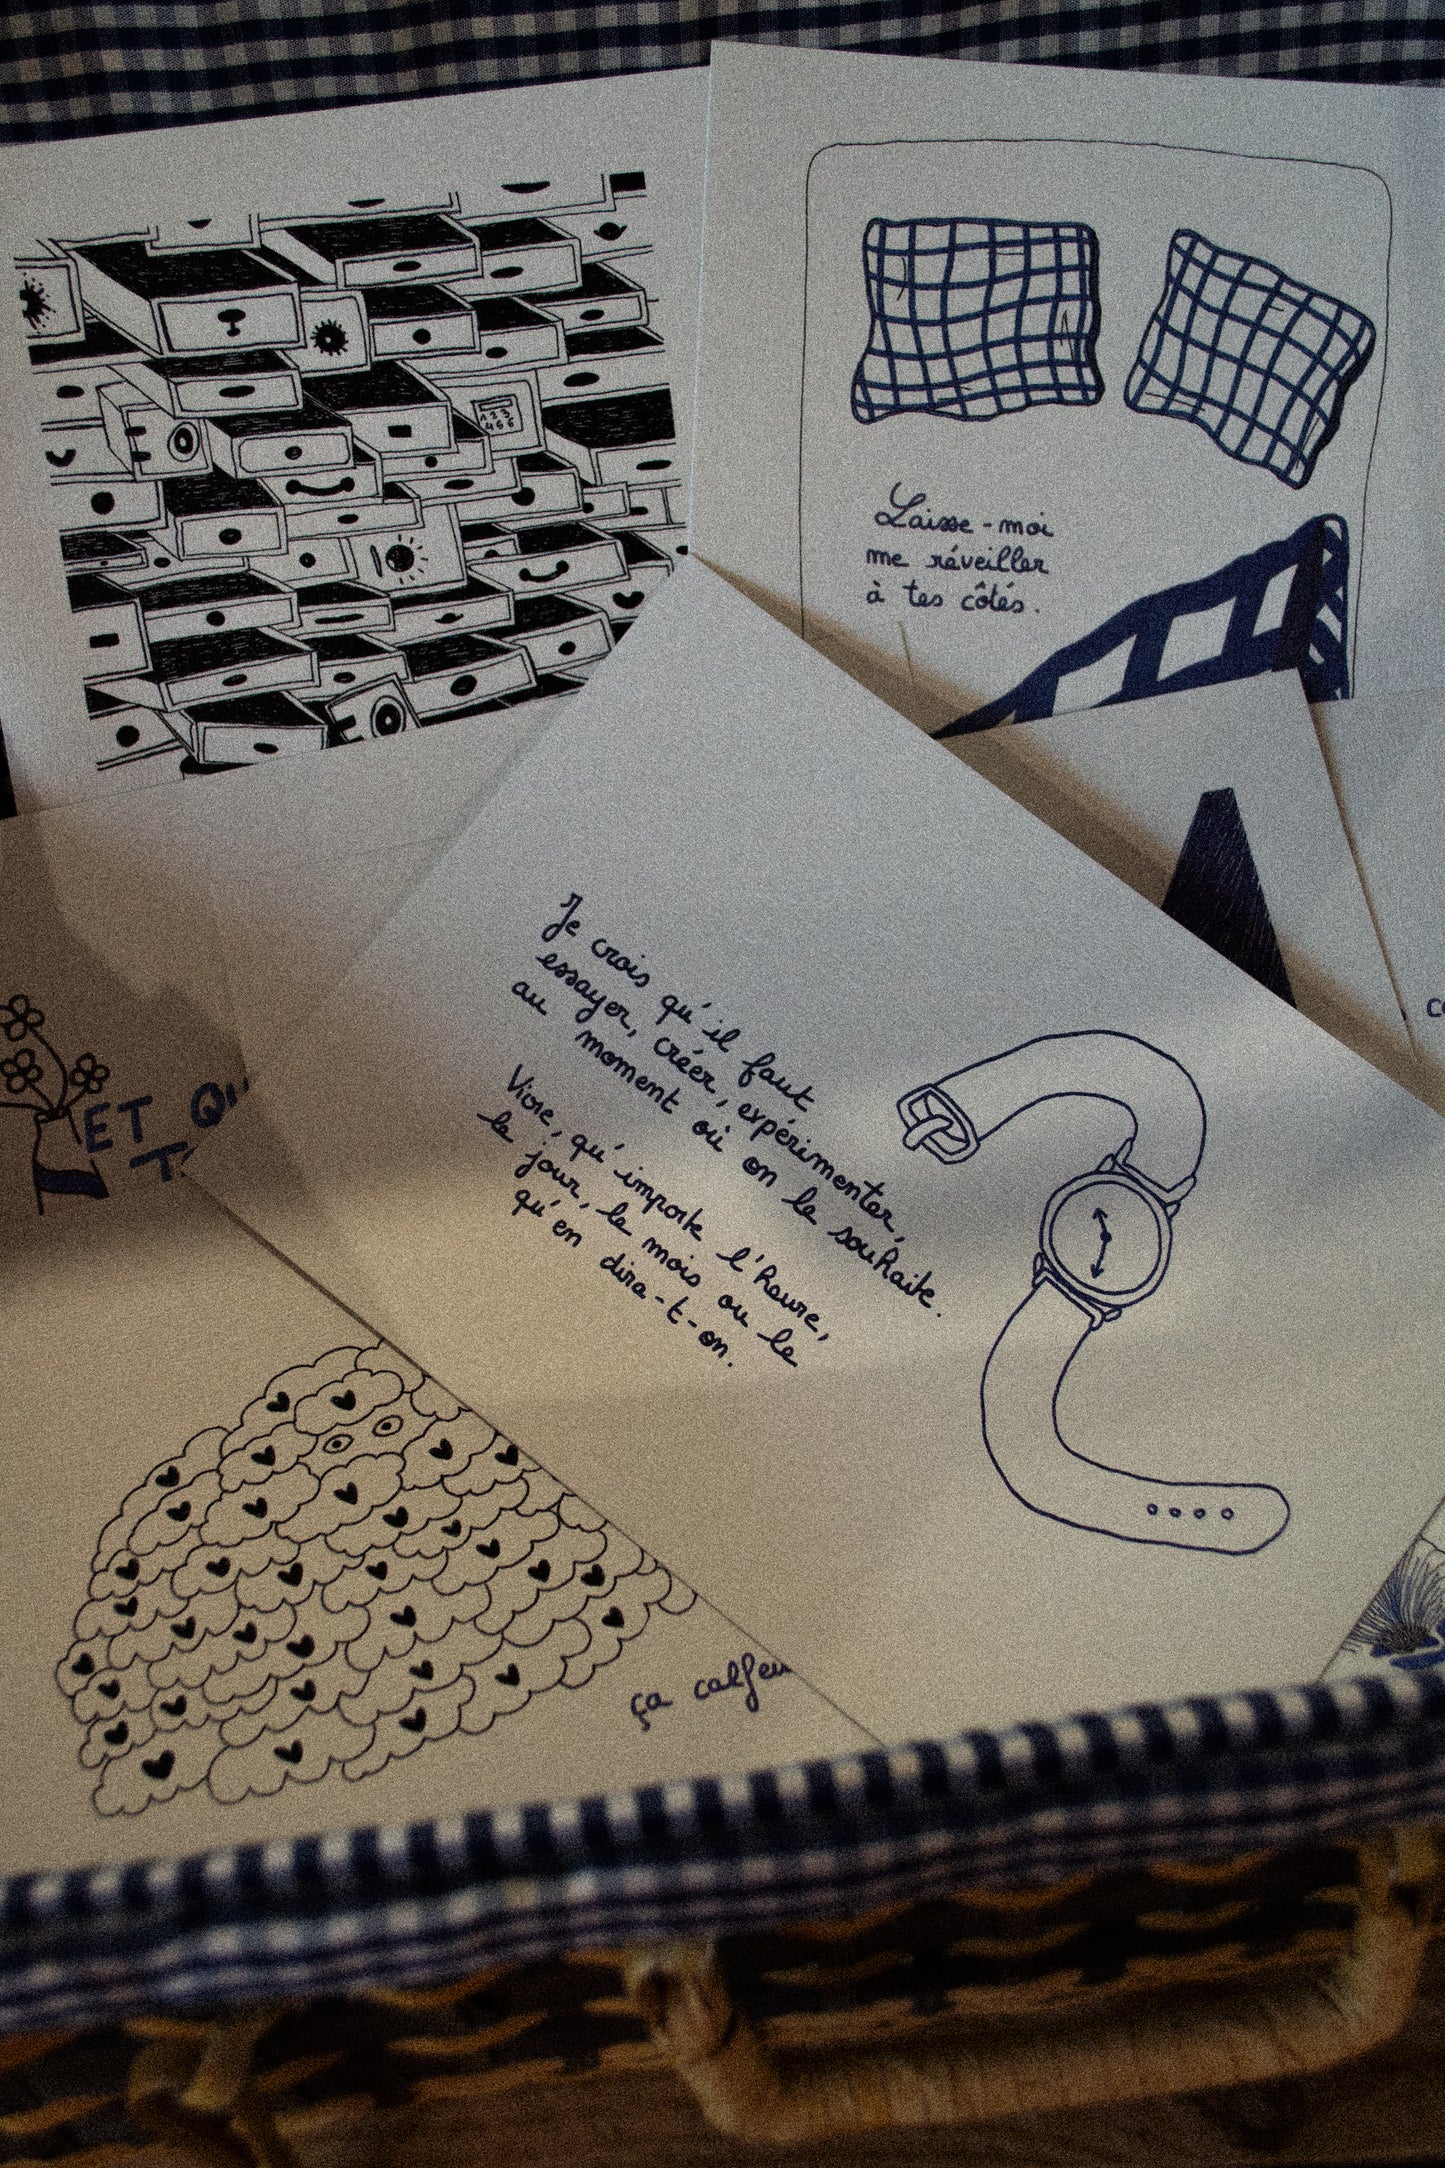 Laisse-moi
me réveiller
à tes côtés.
Je crois qu'il faut
essayer, créer, expérimenter,
au moment où on le souhaite.
Vivre, qu'importe l'heure,
le jour, le mois ou le
qu'en dira-t-on.
ET QU
ça calfeu